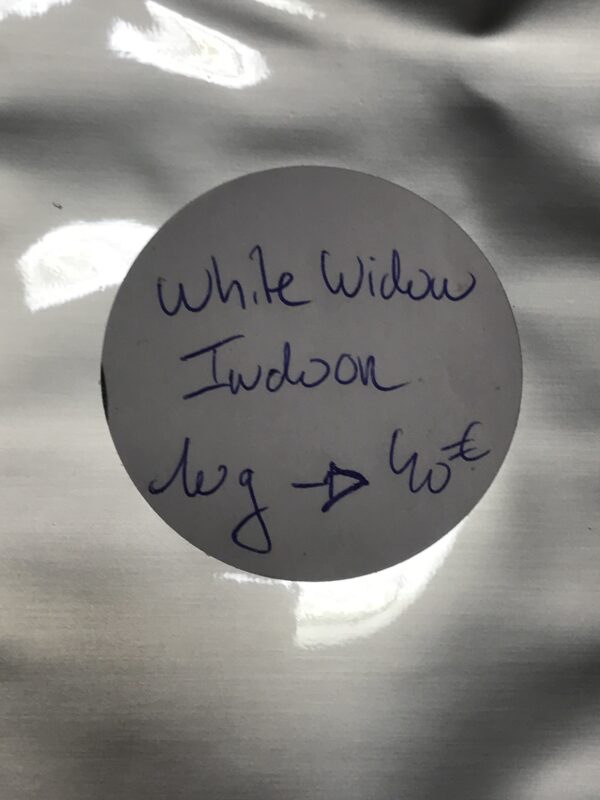 White Widow
Indoor
10g → 40€